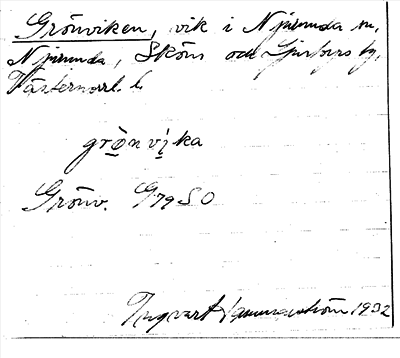 Grönviken, vik i Njurunda sn,
Njurunda, Sköns och Ljustorps tg,
Västernorrl. l.
grò̱n vì̱ka
Grönv. G79SO
Ingvart Hammarström 1932